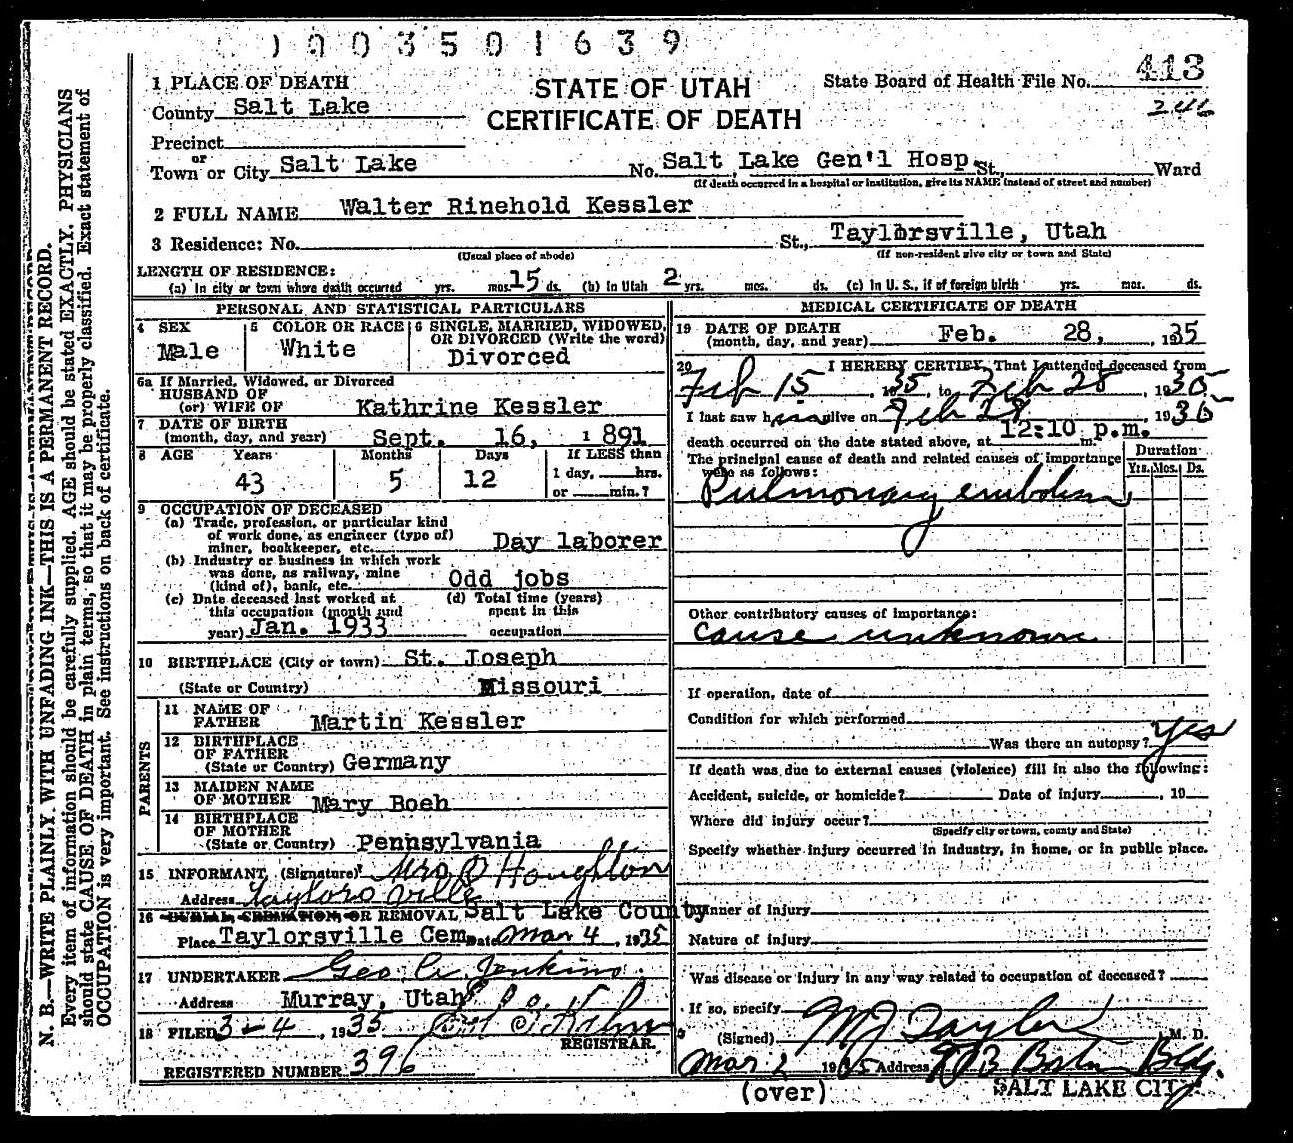 003501639
1 PLACE OF DEATH
STATE OF UTAH
CERTIFICATE OF DEATH
State Board of Health File No. 413
246
County Salt Lake
Precinct
or
Town or City Salt Lake No. Salt Lake Gen'l Hosp. St., Ward
(If death occurred in a hospital or institution, give its NAME instead of street and number)
2 FULL NAME Walter Rinehold Kessler
3 Residence: No. St., Taylorsville, Utah
(Usual place of abode) (If non-resident give city or town and State)
LENGTH OF RESIDENCE:
(a) In city or town where death occurred yrs. mos. 15 ds. (b) In Utah 2 yrs. mos. ds. (c) In U. S., if of foreign birth yrs. mos. ds.
PERSONAL AND STATISTICAL PARTICULARS
4 SEX Male
5 COLOR OR RACE White
6 SINGLE, MARRIED, WIDOWED, OR DIVORCED (Write the word)
Divorced
6a If Married, Widowed, or Divorced
HUSBAND OF
(or) WIFE OF Kathrine Kessler
7 DATE OF BIRTH
(month, day, and year) Sept. 16, 1891
8 AGE Years Months Days If LESS than
43 5 12 1 day, hrs.
or min.?
9 OCCUPATION OF DECEASED
(a) Trade, profession, or particular kind
of work done, as engineer (type of)
miner, bookkeeper, etc. Day laborer
(b) Industry or business in which work
was done, as railway, mine
(kind of), bank, etc. Odd jobs
(c) Date deceased last worked at (d) Total time (years)
this occupation (month and spent in this
year) Jan. 1933 occupation
10 BIRTHPLACE (City or town) St. Joseph
(State or Country) Missouri
PARENTS
11 NAME OF
FATHER Martin Kessler
12 BIRTHPLACE
OF FATHER
(State or Country) Germany
13 MAIDEN NAME
OF MOTHER Mary Boeh
14 BIRTHPLACE
OF MOTHER
(State or Country) Pennsylvania
15 INFORMANT (Signature) Mrs Houghton
Address Taylorsville
16 BURIAL, CREMATION, OR REMOVAL, Salt Lake County
Place Taylorsville Cem Date Mar 4, 1935
17 UNDERTAKER Geo Jenkins
Address Murray, Utah
18 FILED 3-4, 1935
REGISTRAR.
REGISTERED NUMBER 396
MEDICAL CERTIFICATE OF DEATH
19 DATE OF DEATH
(month, day, and year) Feb. 28, 1935
20 I HEREBY CERTIFY, That I attended deceased from
Feb 15, 1935, to Feb 28, 1935
I last saw him alive on Feb 28 1935
death occurred on the date stated above, at 12:10 p.m. m.
The principal cause of death and related causes of importance
were as follows:
Duration
Yrs. Mos. Ds.
Pulmonary embolism
Other contributory causes of importance:
cause unknown
If operation, date of
Condition for which performed
Was there an autopsy? Yes
If death was due to external causes (violence) fill in also the following:
Accident, suicide, or homicide? Date of injury, 19
Where did injury occur?
(Specify city or town, county and State)
Specify whether injury occurred in industry, in home, or in public place.
Manner of injury
Nature of injury
Was disease or injury in any way related to occupation of deceased?
If so, specify
(Signed) M J Taylor M. D.
Mar 1935 Address Bldg.
SALT LAKE CITY
(over)
N. B.—WRITE PLAINLY, WITH UNFADING INK—THIS IS A PERMANENT RECORD.
Every item of information should be carefully supplied. AGE should be stated EXACTLY. PHYSICIANS
should state CAUSE OF DEATH in plain terms, so that it may be properly classified. Exact statement of
OCCUPATION is very important. See instructions on back of certificate.